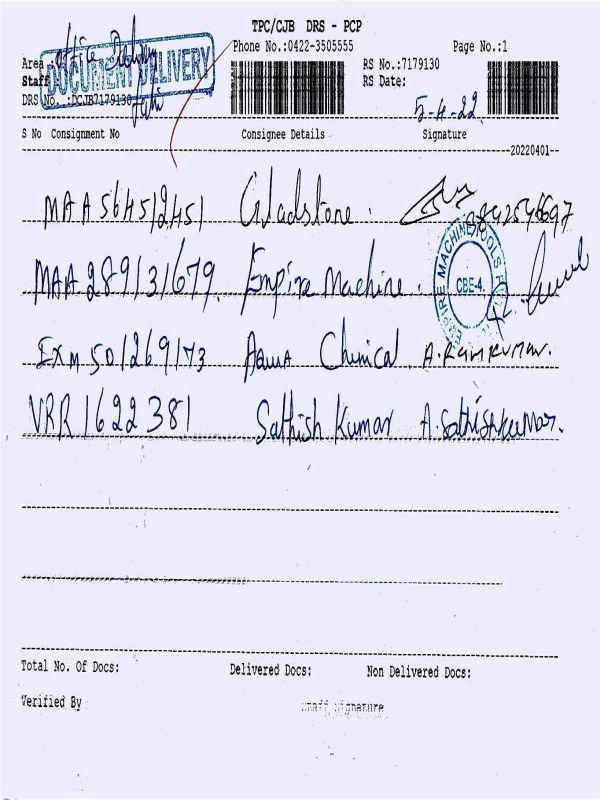 TPC/CJB DRS - PCP
Phone No.:0422-3505555 Page No.:1
Office Delivery
Area :
DOCUMENT DELIVERY
RS No.:7179130
Staff
RS Date:
DRS No. :DCJB7179130
5-4-22
S No Consignment No Consignee Details Signature
20220401
MAA564512451 Gladstone.
MAA 289131679. Empire Machine.
EMPIRE MACHINE TOOLS
CBE-4.
EXM 501269173 Aqua Chemical. A. RAMKUMAR.
VRR 1622381 Sathish Kumar A. Sathishkumar.
Total No. Of Docs: Delivered Docs: Non Delivered Docs:
Verified By Staff Signature